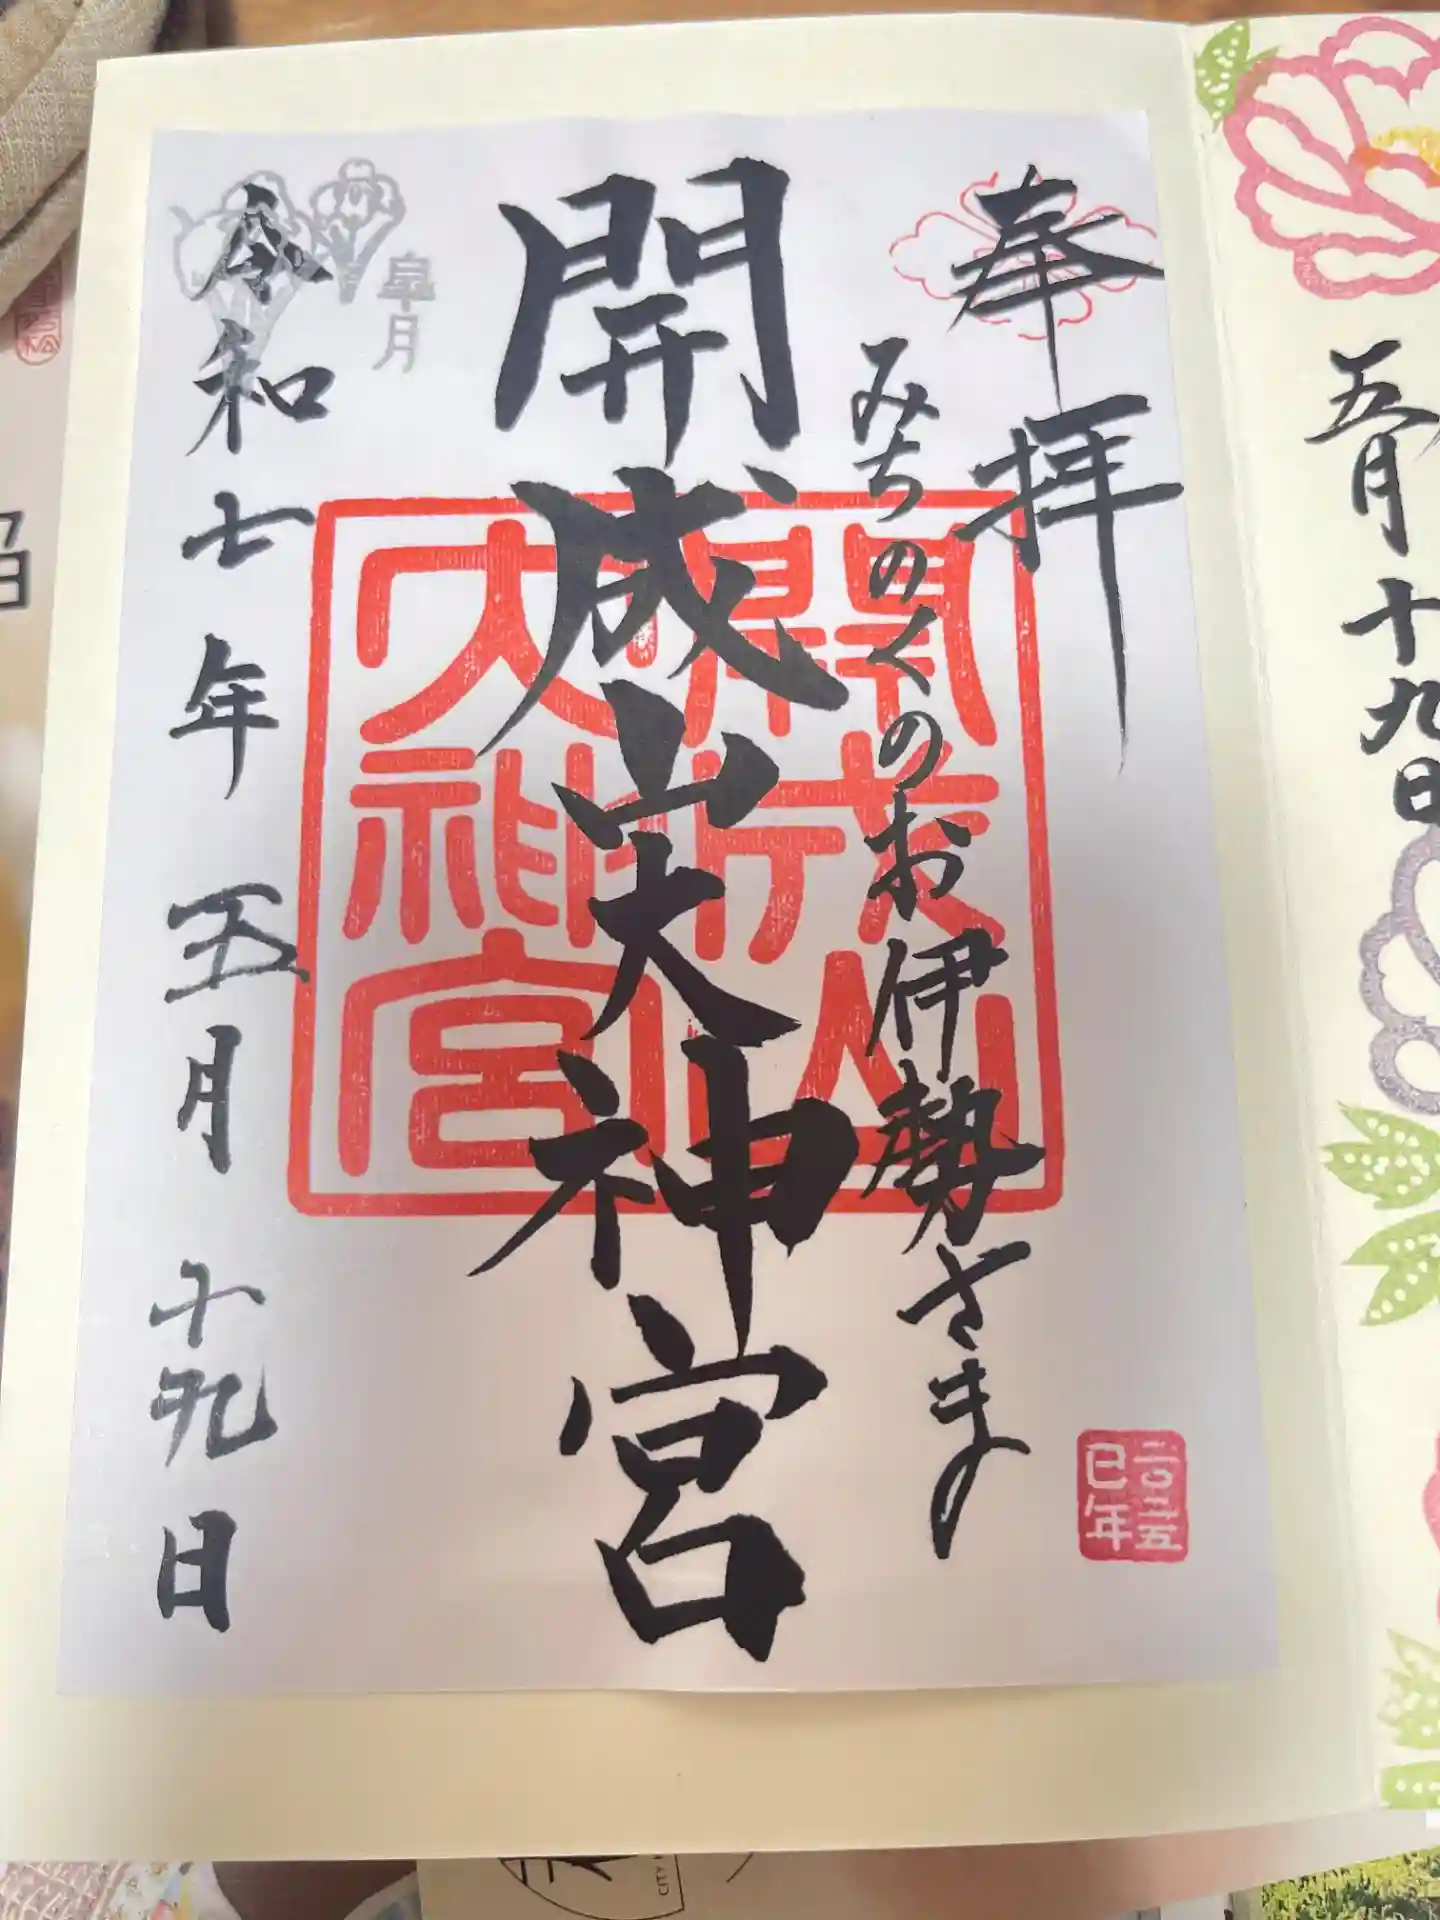 五月十九日
奉拝
みちのくのお伊勢さま
二〇二五
巳年
開成山大神宮
開成山
大神宮
皐月
令和七年五月十九日
CITY